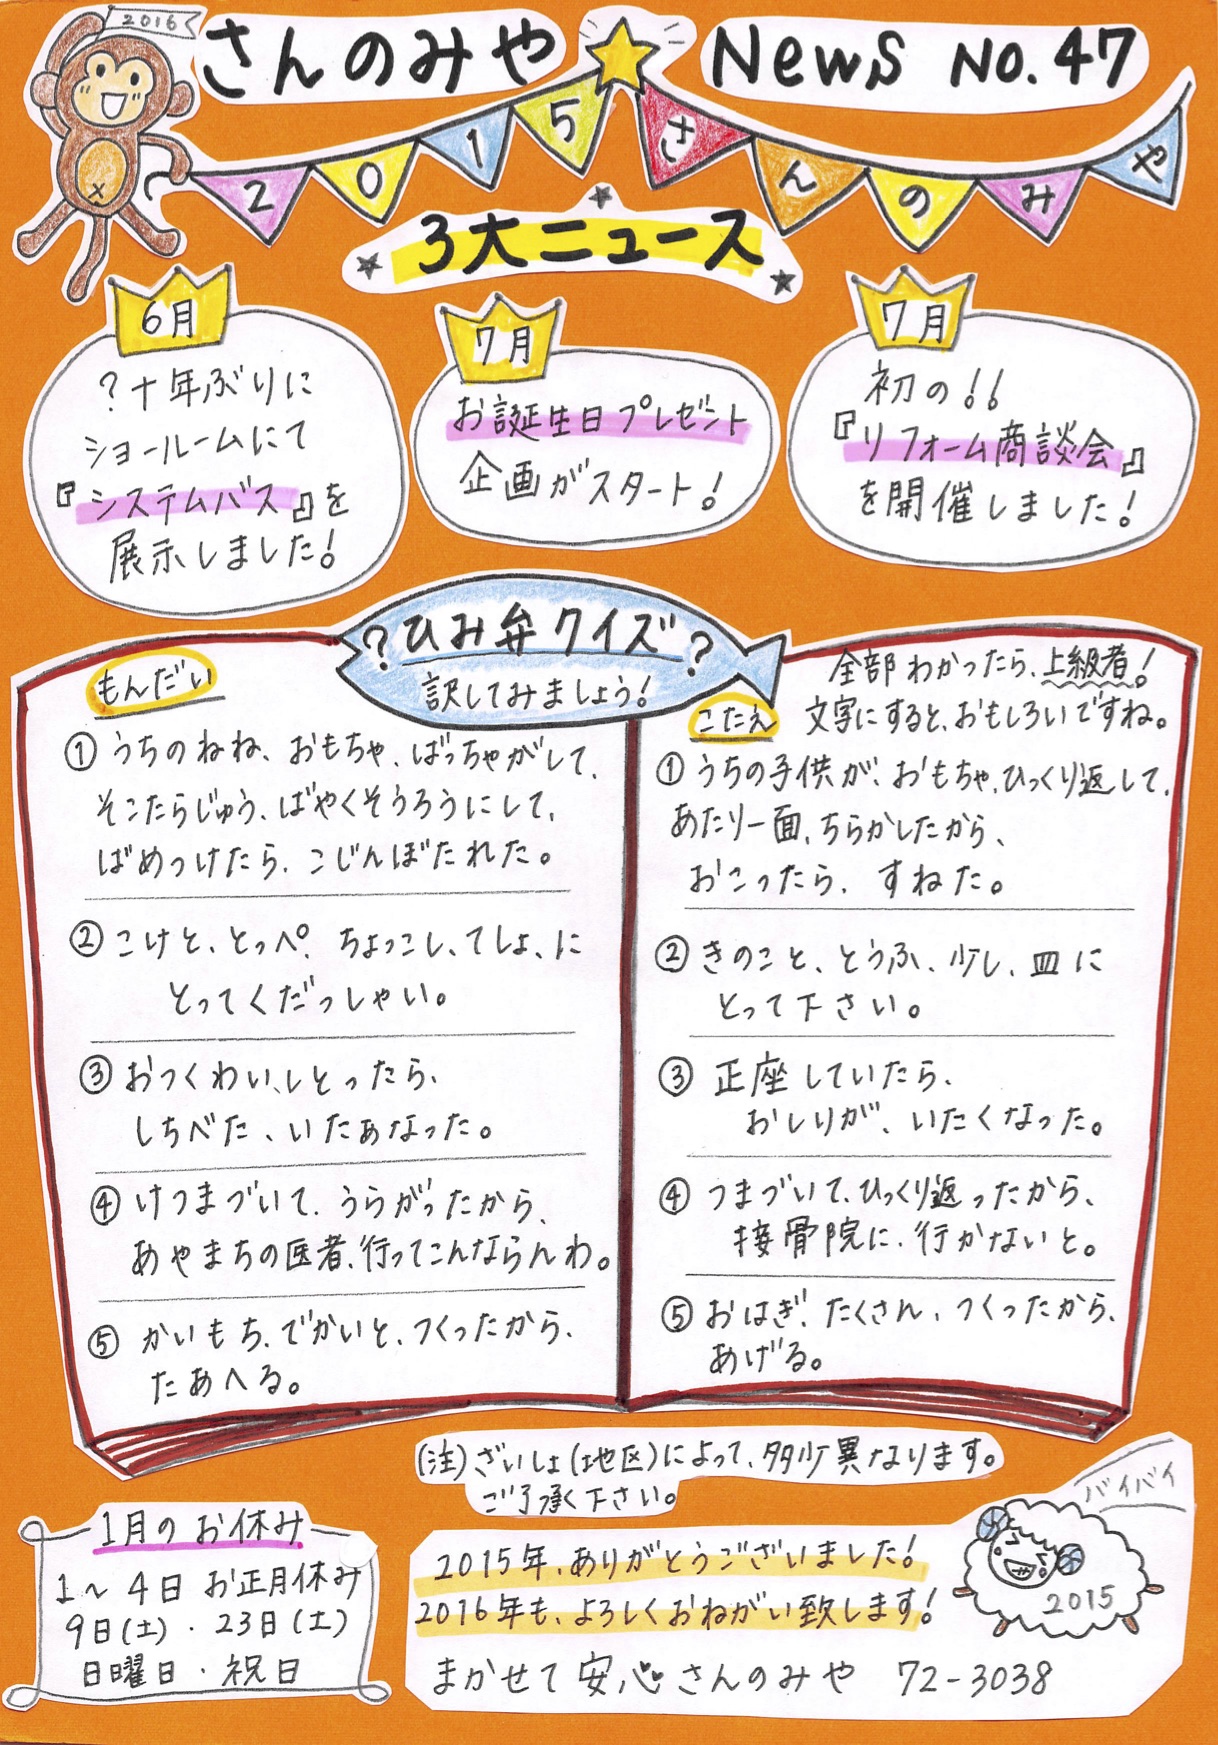 2016
さんのみや News No.47
2015さんのみや
3大ニュース
6月
?十年ぶりに
ショールームにて
『システムバス』を
展示しました!
7月
お誕生日プレゼント
企画がスタート!
7月
初の!!
『リフォーム商談会』
を開催しました!
?ひみ弁クイズ?
訳してみましょう!
もんだい
① うちのねね、おもちゃ、ばっちゃがして、
そこたらじゅう、ばやくそうろうにして、
ばめつけたら、こじんぼたれた。
② こけと、とっぺ、ちょっこし、てしょ、に
とってくだっしゃい。
③ おつくわい、しとったら、
しちべた、いたぁなった。
④ けつまづいて、うらがったから、
あやまちの医者、行ってこんならんわ。
⑤ かいもち、でかいと、つくったから、
たあへる。
全部わかったら、上級者!
文字にすると、おもしろいですね。
こたえ
① うちの子供が、おもちゃ、ひっくり返して、
あたり一面、ちらかしたから、
おこったら、すねた。
② きのこと、とうふ、少し、皿に
とって下さい。
③ 正座していたら、
おしりが、いたくなった。
④ つまづいて、ひっくり返ったから、
接骨院に、行かないと。
⑤ おはぎ、たくさん、つくったから、
あげる。
(注)ざいしょ(地区)によって、多少異なります。
ご了承下さい。
1月のお休み
1〜4日 お正月休み
9日(土)・23日(土)
日曜日・祝日
2015年、ありがとうございました!
2016年も、よろしくおねがい致します!
まかせて安心 さんのみや 72-3038
バイバイ
2015